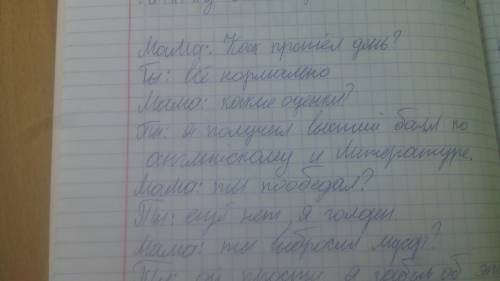 Мама: Как прошёл день?
Ты: всё нормально
Мама: какие оценки?
Ты: я получил высший балл по
английскому и литературе.
Мама: ты пообедал?
Ты: ещё нет, я голоден.
Мама: ты выбросил мусор?
Ты: ой прости я забыл об